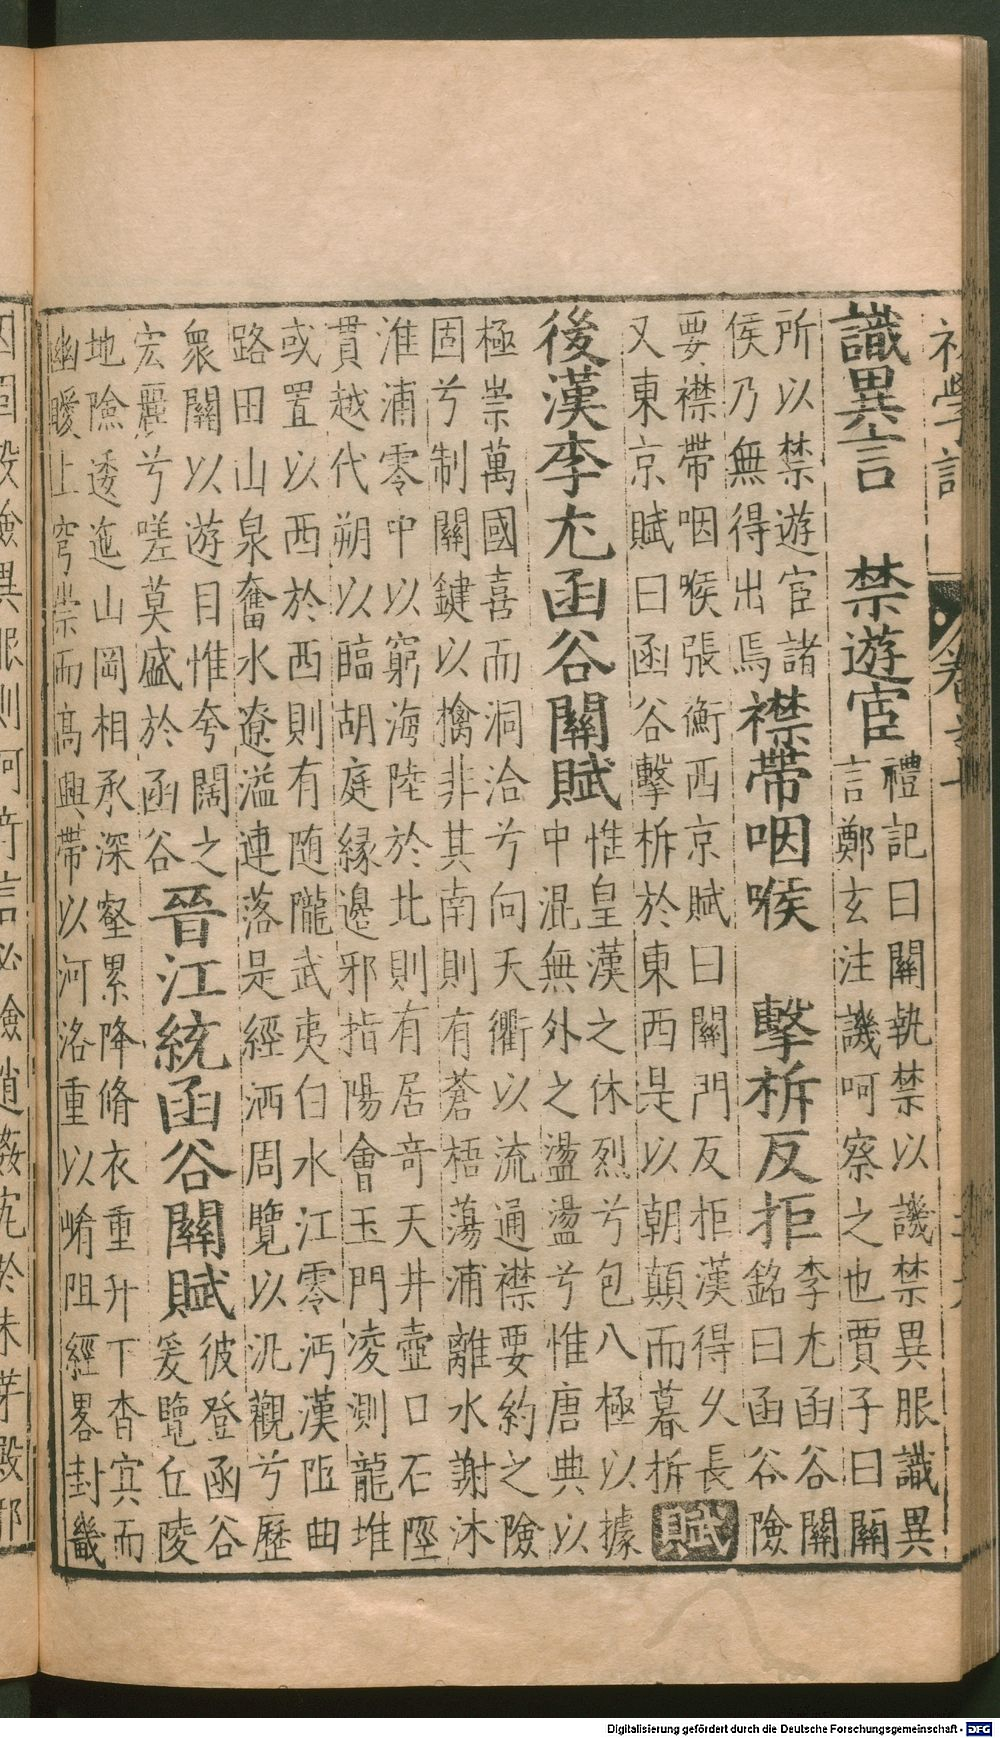 初學記
卷之七
識異言　禁遊宦
禮記曰關執禁以譏禁異服識異
言鄭玄注譏呵察之也賈子曰關
所以禁遊宦諸
侯乃無得出焉
襟帶咽喉　擊柝反拒
李尤函谷關
銘曰函谷險
要襟帶咽喉張衡西京賦曰關門反拒漢得久長
又東京賦曰函谷擊柝於東西是以朝顛而暮柝
賦
後漢李尤函谷關賦
惟皇漢之休烈兮包八極以據
中混無外之盪盪兮惟唐典以
極崇萬國喜而洞洽兮向天衢以流通襟要約之險
固兮制關鍵以擒非其南則有蒼梧蕩浦離水謝沐
淮浦零中以窮海陸於北則有居竒天井壺口石陘
貫越代朔以臨胡庭縁邊邪指陽會玉門凌測龍堆
或置以西於西則有随隴武夷白水江零沔漢阸曲
路田山泉奮水遼溢連落是經洒周覽以汎觀兮歷
衆關以遊目惟夸闊之
宏麗兮嗟莫盛於函谷
晉江統函谷關賦
彼登函谷
爰覽丘陵
地險逶迤山岡相承深壑累降脩衣重升下杳㝠而
幽曖上穹崇而高興帶以河洛重以崤阻經畧封畿
因固設險異服則呵竒言必檢遏姦宄於未芽殿邪
Digitalisierung gefördert durch die Deutsche Forschungsgemeinschaft - DFG